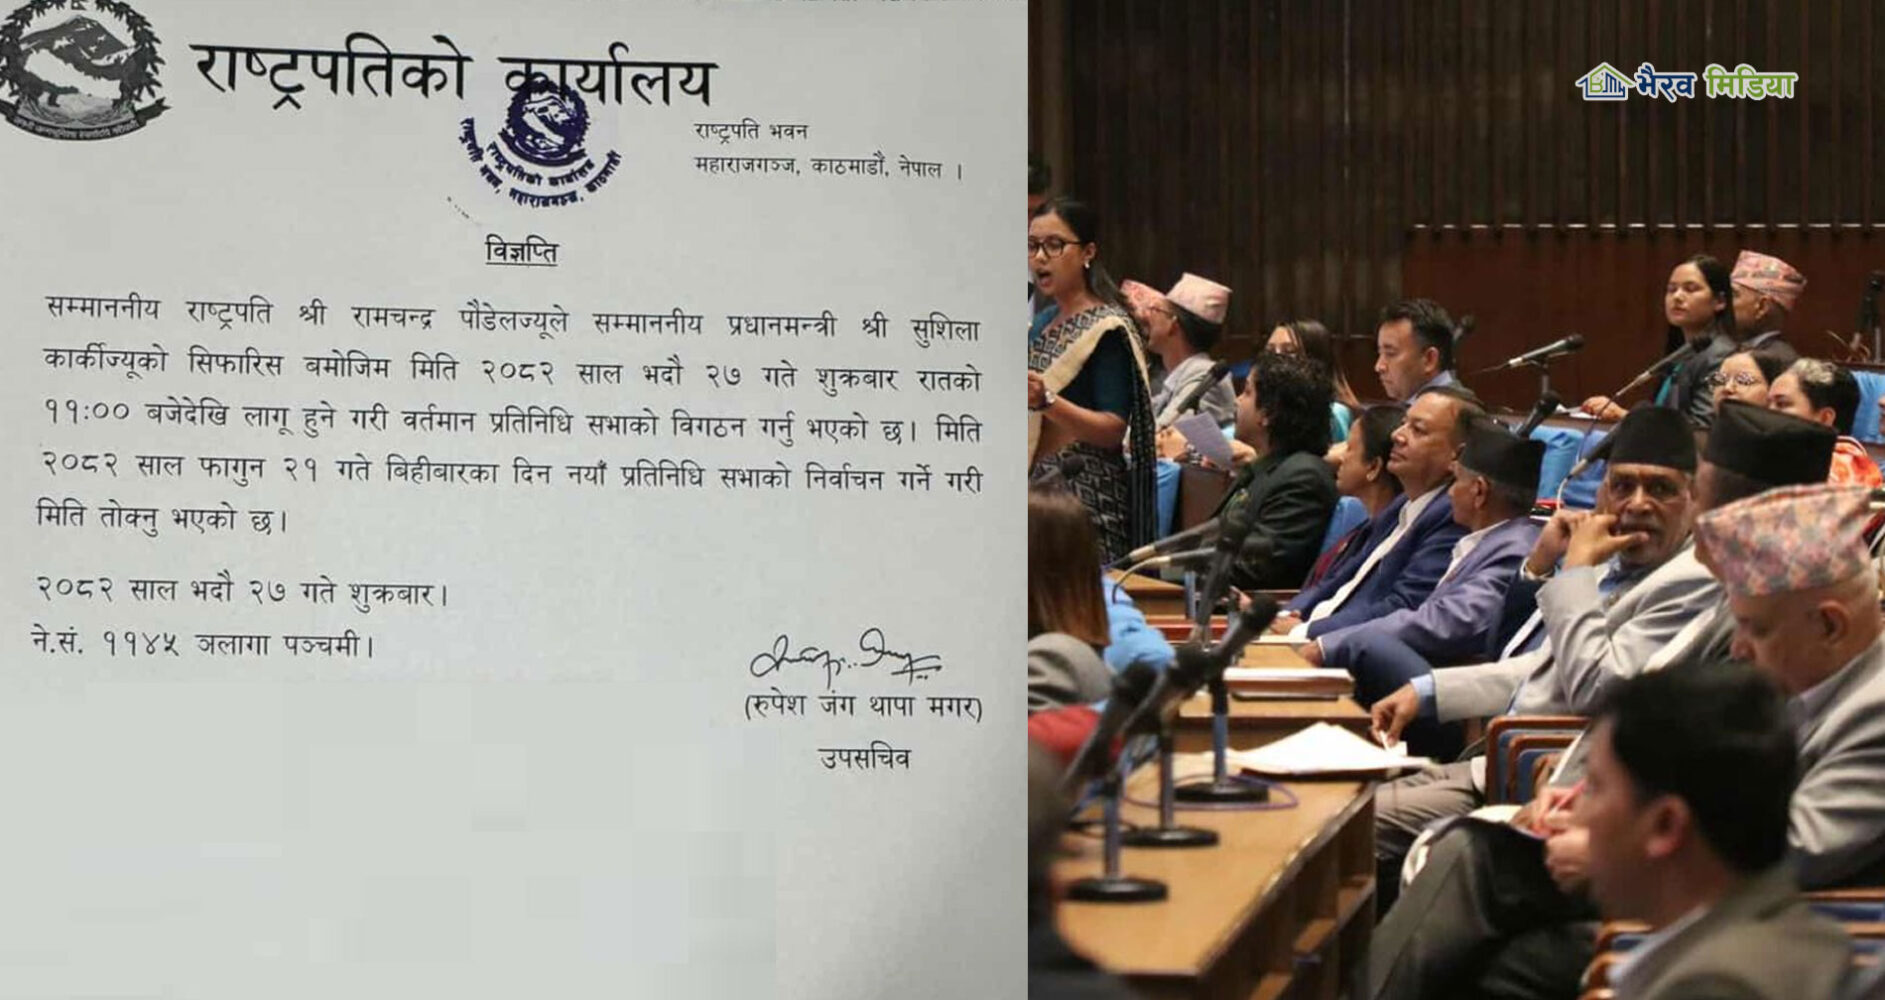 राष्ट्रपतिको कार्यालय
राष्ट्रपति भवन
महाराजगञ्ज, काठमाडौं, नेपाल ।
राष्ट्रपतिको कार्यालय
राष्ट्रपति भवन, महाराजगञ्ज, काठमाडौं
विज्ञप्ति
सम्माननीय राष्ट्रपति श्री रामचन्द्र पौडेलज्यूले सम्माननीय प्रधानमन्त्री श्री सुशिला
कार्कीज्यूको सिफारिस बमोजिम मिति २०८२ साल भदौ २७ गते शुक्रबार रातको
११:०० बजेदेखि लागू हुने गरी वर्तमान प्रतिनिधि सभाको विगठन गर्नु भएको छ। मिति
२०८२ साल फागुन २१ गते बिहीबारका दिन नयाँ प्रतिनिधि सभाको निर्वाचन गर्ने गरी
मिति तोक्नु भएको छ।
२०८२ साल भदौ २७ गते शुक्रबार।
ने.सं. ११४५ ञलागा पञ्चमी।
(रुपेश जंग थापा मगर)
उपसचिव
भैरव मिडिया